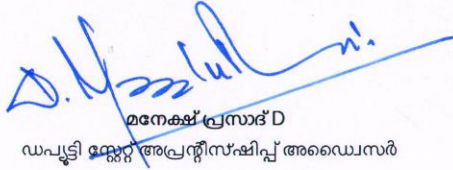 മനേക്ഷ് പ്രസാദ് D
ഡപ്യൂട്ടി സ്റ്റേറ്റ് അപ്രന്റീസ്ഷിപ്പ് അഡ്വൈസർ